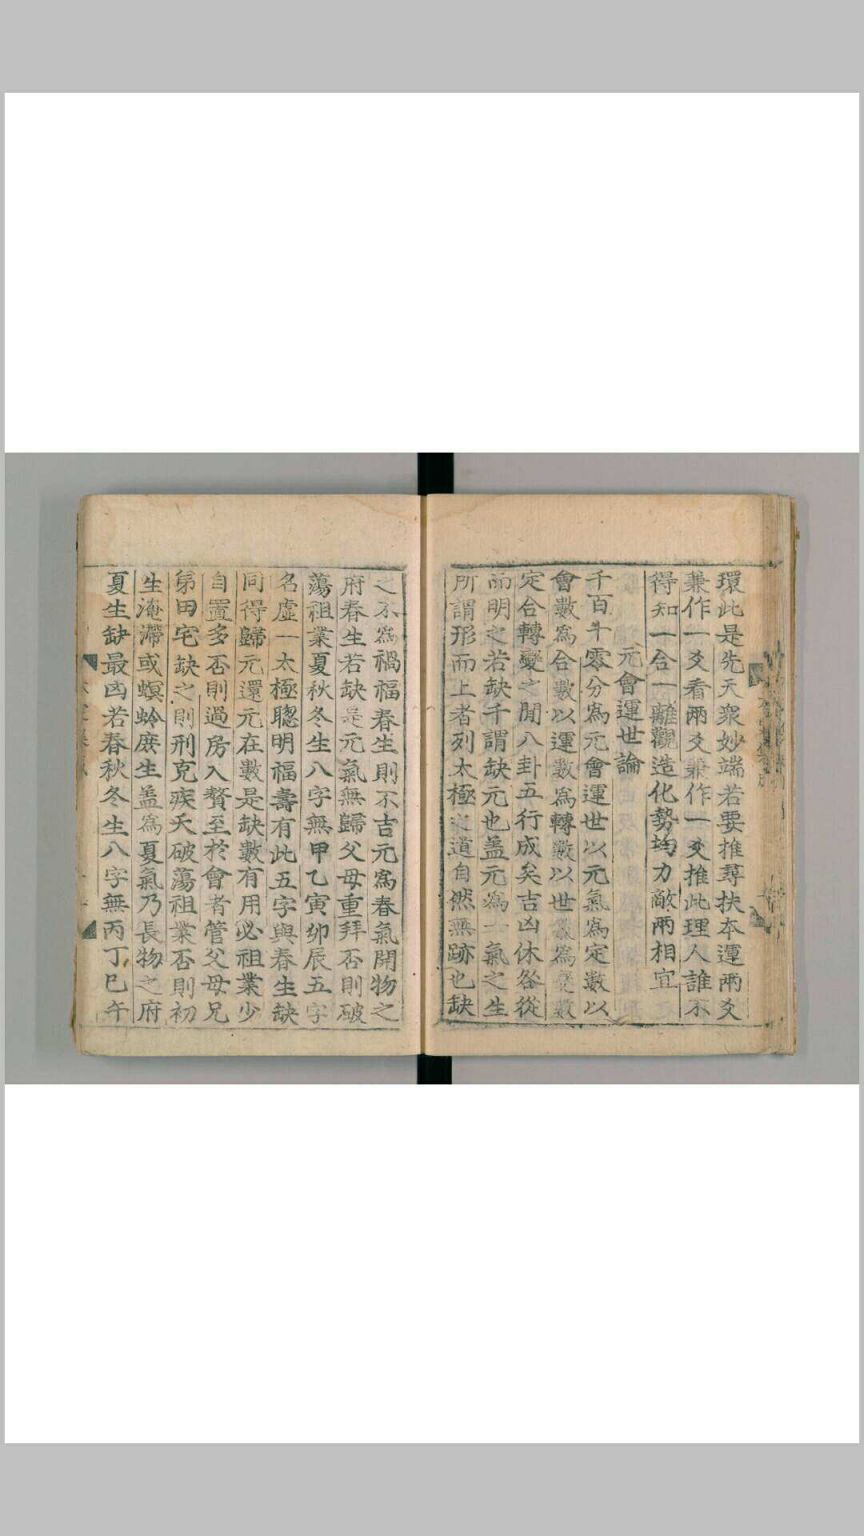 環此是先天衆妙端若要推尋扶本運兩爻
兼作一爻看兩爻兼作一爻推此理人誰不
得知一合一離觀造化勢均力敵兩相宜
元會運世論
千百十零分爲元會運世以元氣爲定數以
會數爲合數以運數爲轉數以世數爲變數
定合轉變之間八卦五行成矣吉凶休咎從
而明之若缺千謂缺元也盖元爲一氣之生
所謂形而上者列太極之道自然無跡也缺
之不爲禍福春生則不吉元爲春氣開物之
府春生若缺是元氣無歸父母重拜否則破
蕩祖業夏秋冬生八字無甲乙寅卯辰五字
名虛一太極聰明福壽有此五字與春生缺
同得歸元還元在數是缺數有用必祖業少
自置多否則過房入贅至於會者管父母兄
弟田宅缺之則刑克疾夭破蕩祖業否則初
生淹滯或螟蛉庶生盖爲夏氣乃長物之府
夏生缺最凶若春秋冬生八字無丙丁巳午